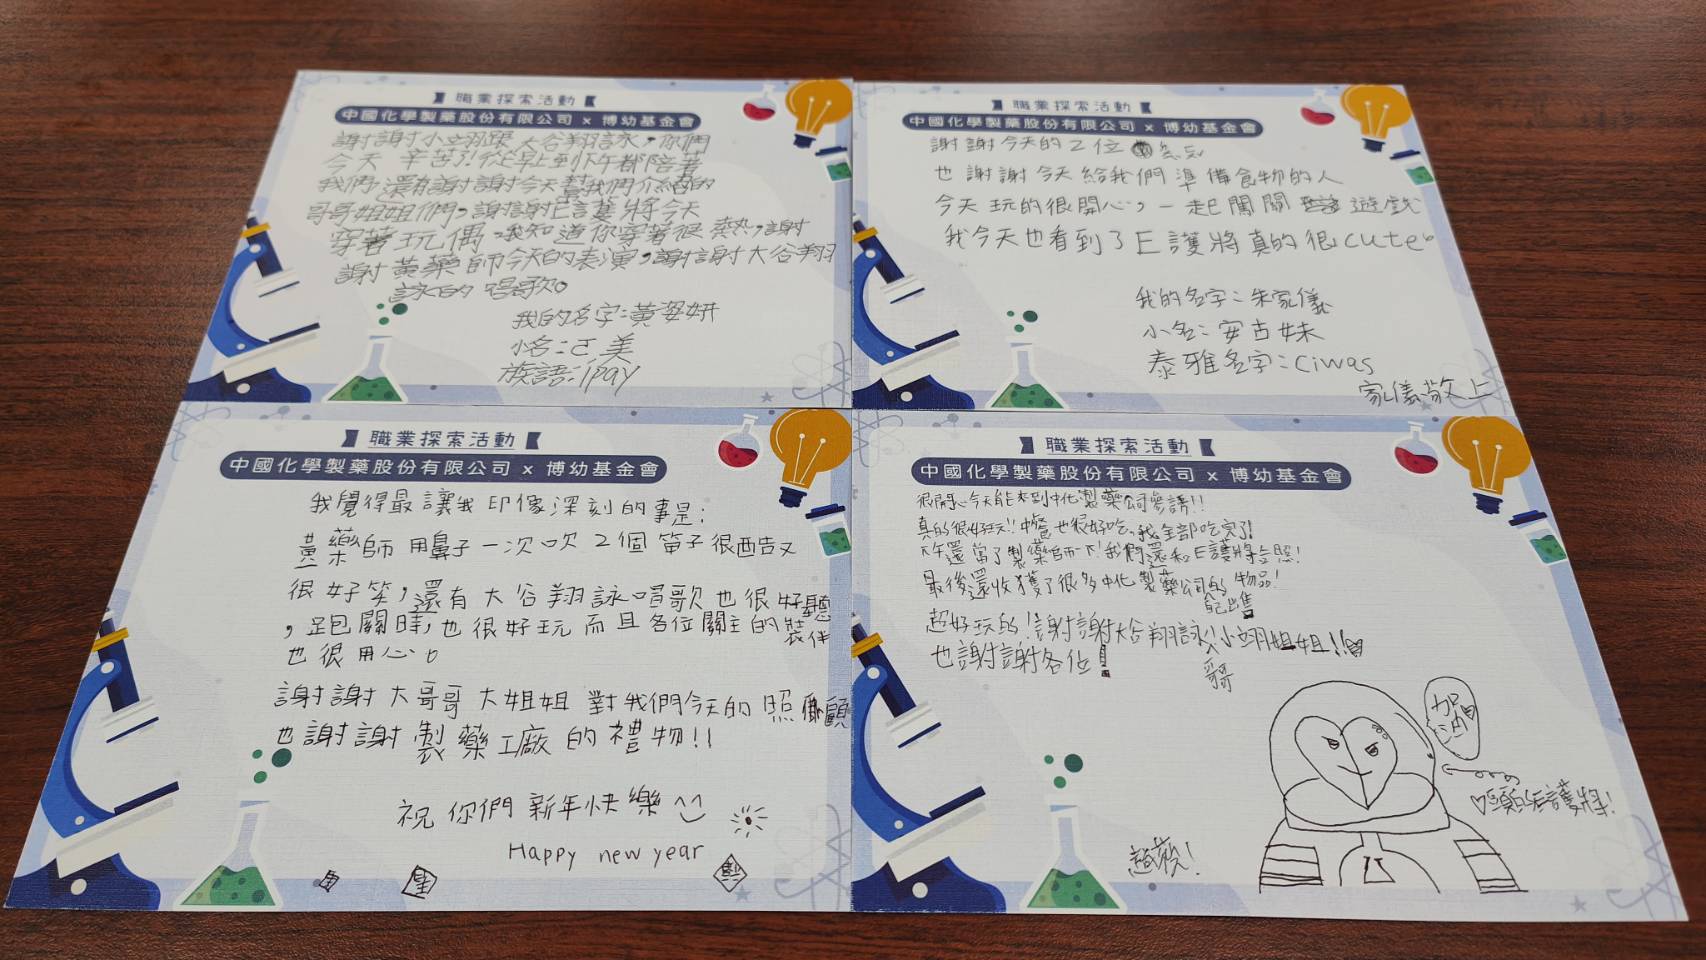 職業探索活動
中國化學製藥股份有限公司 x 博幼基金會
謝謝小翊跟大谷翔詠,你們
今天辛苦了!從早上到下午都陪著
我們,還有謝謝今天幫我們介紹的
哥哥姐姐們,謝謝E護將今天
穿著玩偶,我知道你穿著很熱,謝
謝黃藥師今天的表演,謝謝大谷翔
詠的唱歌。
我的名字:黃
小名:美
族語:Ipay
職業探索活動
中國化學製藥股份有限公司 x 博幼基金會
謝謝今天的2位
也謝謝今天給我們準備食物的人
今天玩的很開心,一起闖關遊戲
我今天也看到了E護將真的很cute。
我的名字:朱家儀
小名:安古妹
泰雅名字:Ciwas
家儀敬上
職業探索活動
中國化學製藥股份有限公司 x 博幼基金會
我覺得最讓我印像深刻的事是:
黃藥師用鼻子一次吹2個笛子很酷又
很好笑,還有大谷翔詠唱歌也很好聽
,跑關時,也很好玩而且各位關主的裝伴
也很用心。
謝謝大哥哥大姐姐對我們今天的照顧
也謝謝製藥工廠的禮物!!
祝你們新年快樂^^
Happy new year
職業探索活動
中國化學製藥股份有限公司 x 博幼基金會
很開心今天能來到中化製藥公司參訪!!
真的很好玩!!中餐也很好吃。我全部吃完了!
下午還當了製藥師一下!我們還和E護將合照!
最後還收獲了很多中化製藥公司的物品!
超好玩的!謝謝大谷翔詠哥哥!小翊姐姐!!
也謝謝各位!
加油
E護將!